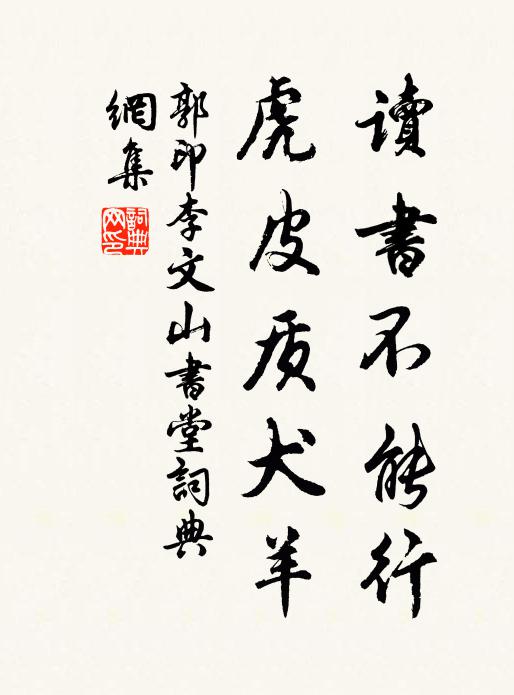 讀書不能行
虎皮质犬羊
郭印李文山書堂詞典
網集
詞典网印